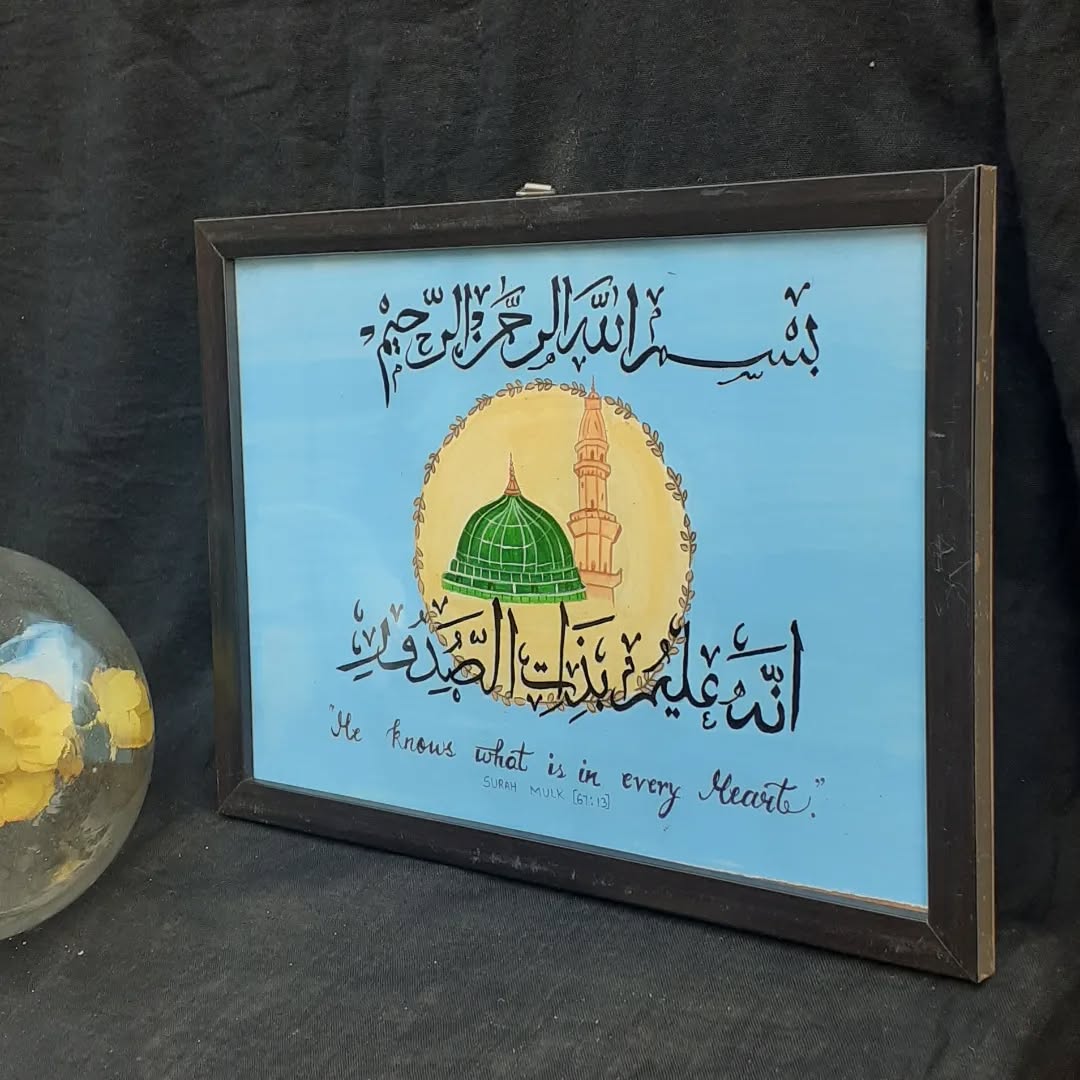 بسم الله الرحمن الرحيم
انّه عليم بذات الصّدور
"He knows what is in every Heart."
SURAH MULK [67:13]